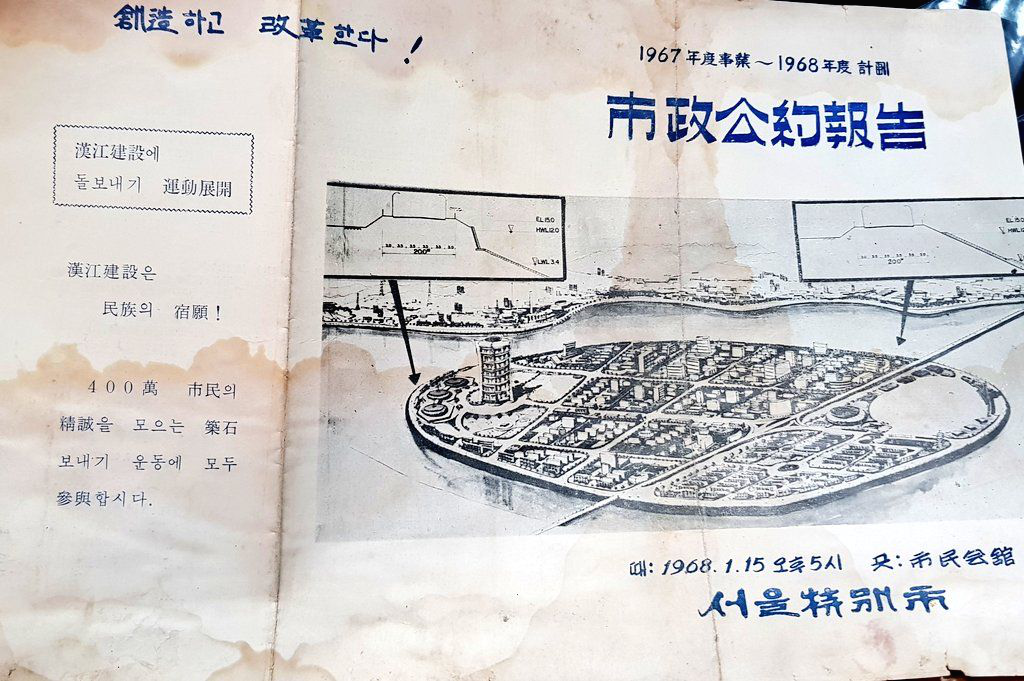 創造하고 改革한다 !
漢江建設에
돌보내기 運動展開
漢江建設은
民族의 宿願 !
400萬 市民의
精誠을 모으는 築石
보내기 운동에 모두
參與합시다.
1967年度事業~1968年度 計劃
市政公約報告
EL 15.0
HWL 12.0
LWL 3.4
200M
EL 15.0
200M
때: 1968. 1. 15 오후5시 곳: 市民会館
서울特別市